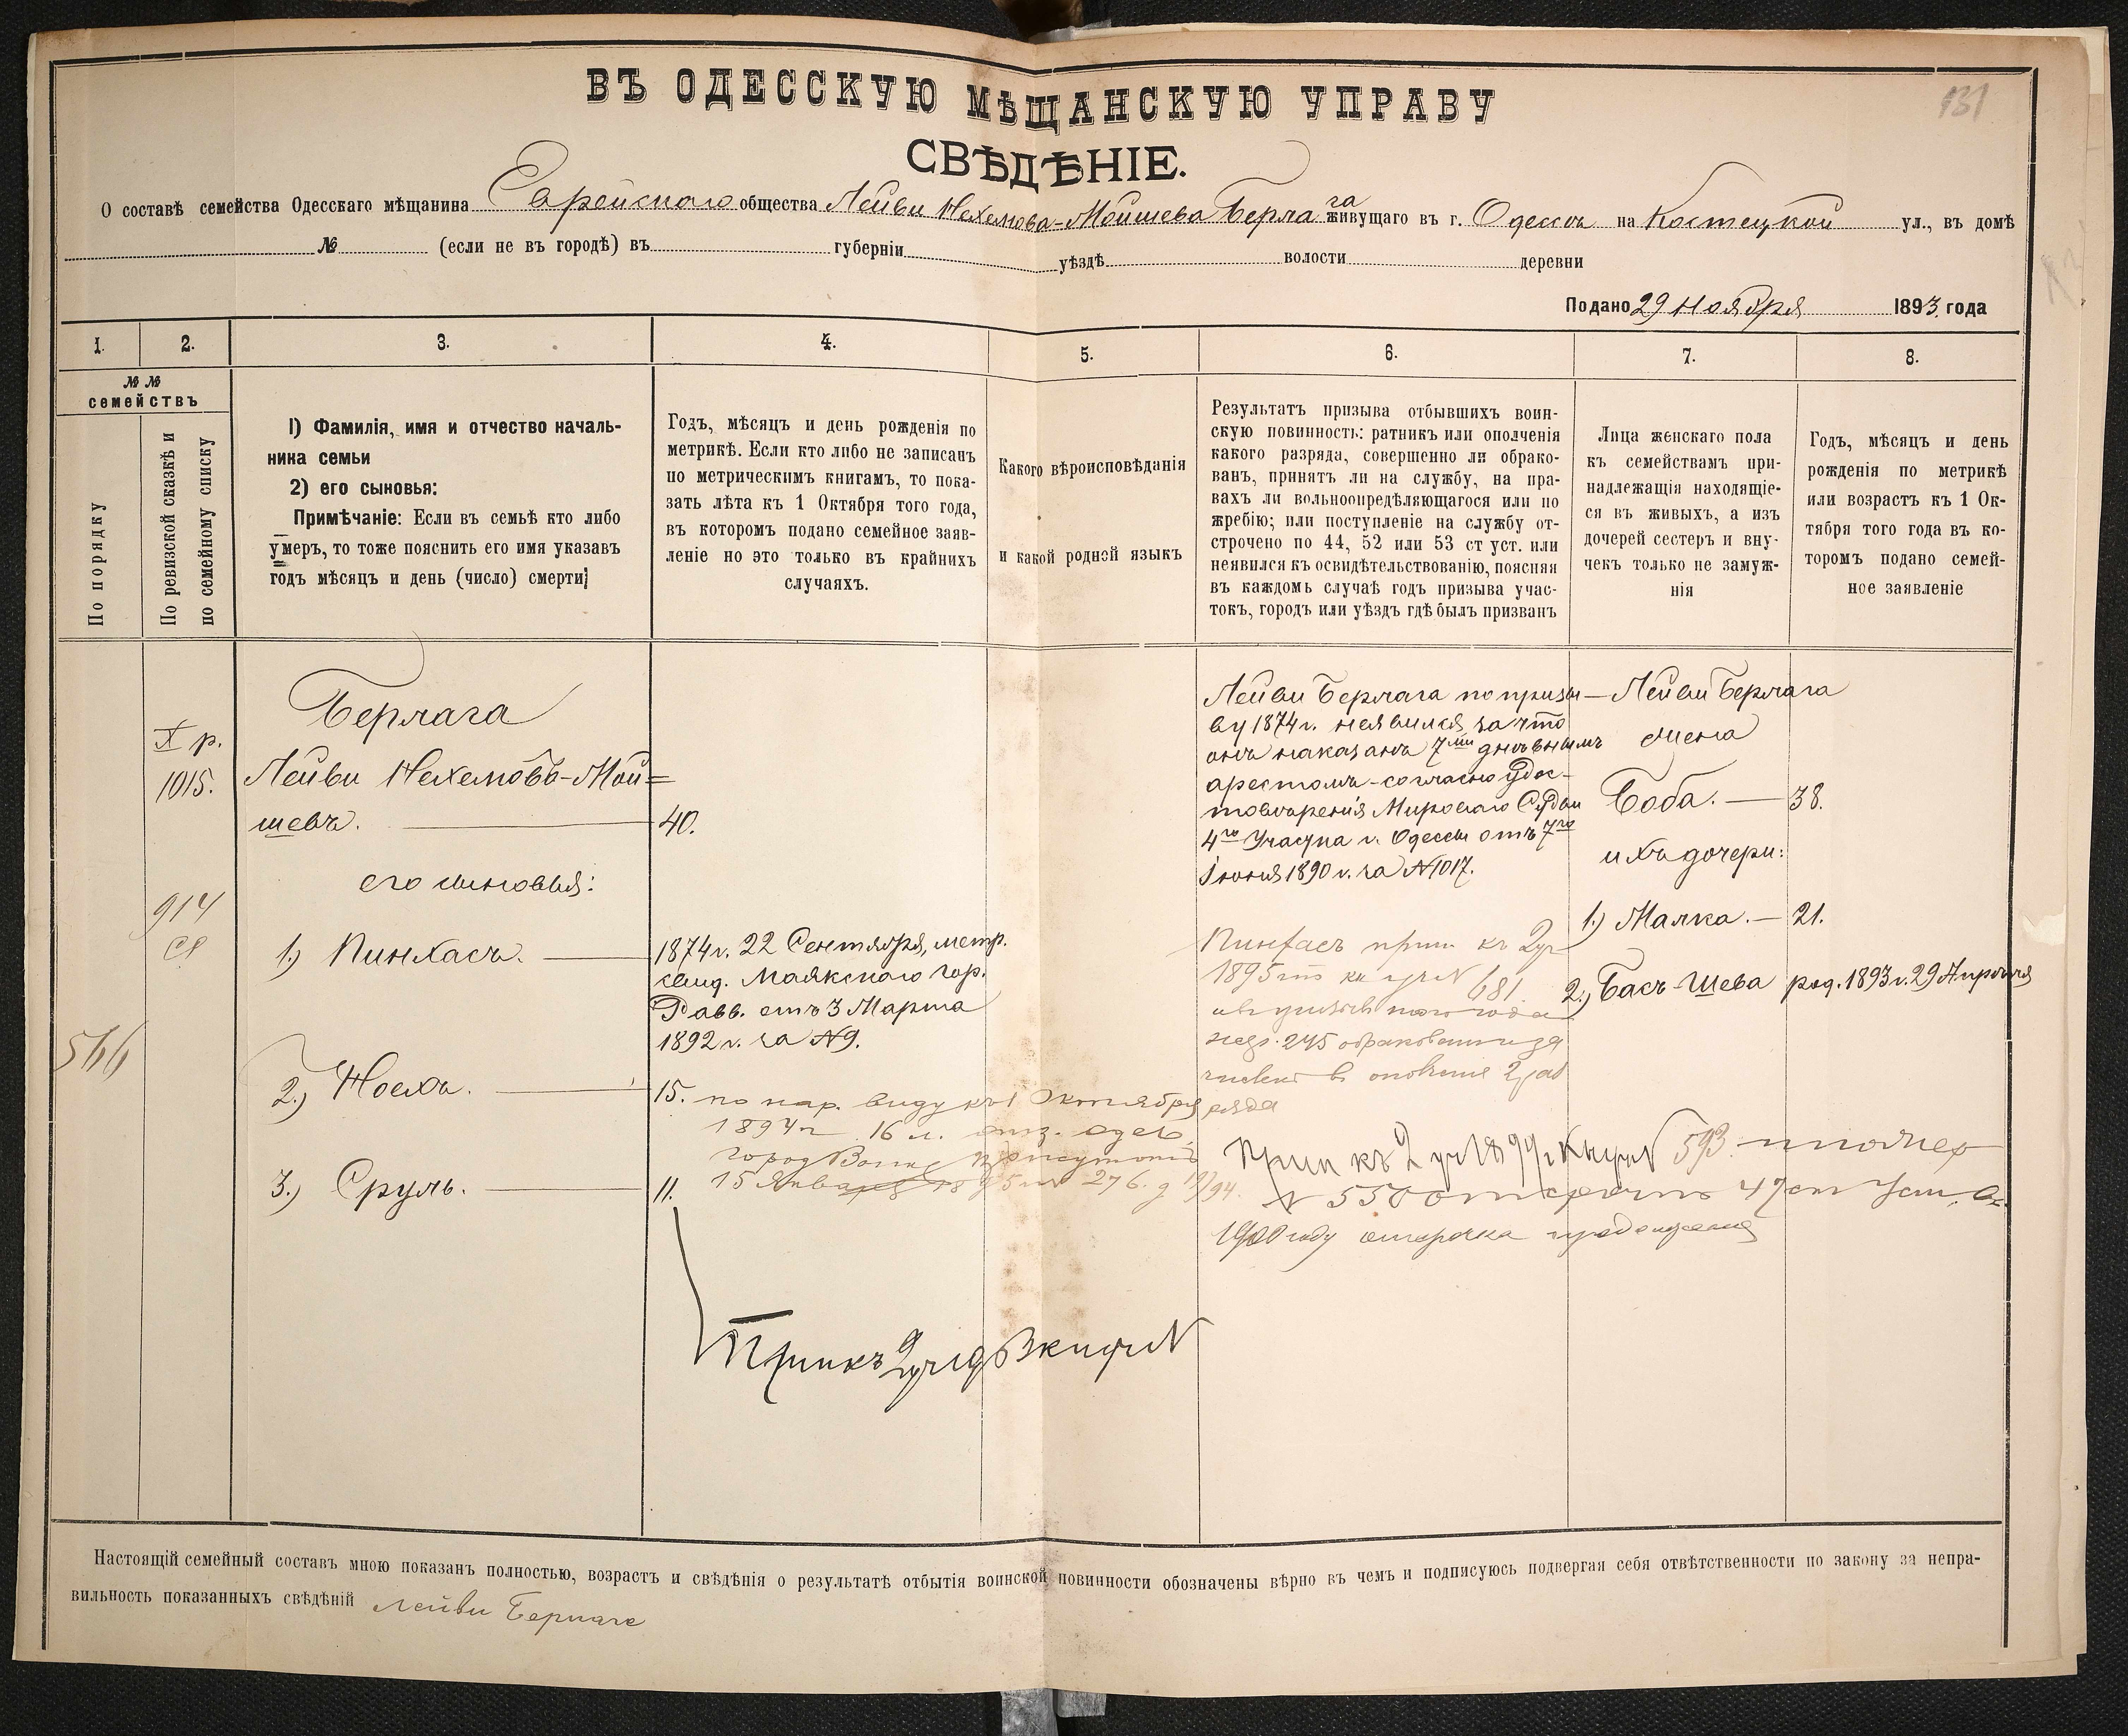 131
ВЪ ОДЕССКУЮ МѢЩАНСКУЮ УПРАВУ
СВѢДѢНІЕ.
О составѣ семейства Одесскаго мѣщанина Еврейскаго общества Лейви Нехемова-Мойшева Берлага живущаго въ г. Одессѣ на Костецкой ул., въ домѣ
№ (если не въ городѣ) въ губерніи уѣздѣ волости деревни
Подано 29 Ноября 1893 года
1. 2. 3. 4. 5. 6. 7. 8.
№ №
семействъ
По порядку
По ревизской сказкѣ и
по семейному списку
1) Фамилія, имя и отчество началь-
ника семьи
2) его сыновья:
Примѣчаніе: Если въ семьѣ кто либо
умеръ, то тоже пояснить его имя указавъ
годъ мѣсяцъ и день (число) смерти;
Годъ, мѣсяцъ и день рожденія по
метрикѣ. Если кто либо не записанъ
по метрическимъ книгамъ, то пока-
зать лѣта къ 1 Октября того года,
въ которомъ подано семейное заяв-
леніе но это только въ крайнихъ
случаяхъ.
Какого вѣроисповѣданія
и какой родной языкъ
Результатъ призыва отбывшихъ воин-
скую повинность: ратникъ или ополченія
какого разряда, совершенно ли обрако-
ванъ, принятъ ли на службу, на пра-
вахъ ли вольноопредѣляющагося или по
жребію; или поступленіе на службу от-
строчено по 44, 52 или 53 ст уст. или
неявился къ освидѣтельствованію, поясняя
въ каждомъ случаѣ годъ призыва учас-
токъ, городъ или уѣздъ гдѣ былъ призванъ
Лица женскаго пола
къ семействамъ при-
надлежащія находящіе-
ся въ живыхъ, а изъ
дочерей сестеръ и вну-
чекъ только не замуж-
нія
Годъ, мѣсяцъ и день
рожденія по метрикѣ
или возрастъ къ 1 Ок-
тября того года въ ко-
торомъ подано семей-
ное заявленіе
X р.
1015.
914
566
Берлага
Лейви Нехемовъ-Мой=
шевъ. — 40.
его сыновья:
1.) Пинхасъ. —
1874 г. 22 Сентября, метр.
свид. Маякскаго гор.
Равв. отъ 3 Марта
1892 г. за №9.
2.) Ноехъ. — 15.
по нар. виду къ 1 Октября
1894 г 16 л.
город
15 Января 276
3.) Сруль. — 11.
Прип къ 2 уч
Лейви Берлага по призы-
ву 1874 г. неявился, за что
онъ наказанъ 7ми дневнымъ
арестомъ-согласно удос-
товѣренія Мироваго Судьи
4го Участка г. Одессы отъ 7го
Іюня 1890 г. за №1017.
Пинхасъ прип. къ 2 уч
1895 681.
245
ряда
Прип къ 2 уч 1899 593
№ 550 47 ст Уст.
1900 году отсрочка
— Лейви Берлага
жена
Боба. — 38.
ихъ дочери:
1.) Малка. — 21.
2.) Басъ-Шева род. 1893 г. 29 Апрѣля
Настоящій семейный составъ мною показанъ полностью, возрастъ и свѣдѣнія о результатѣ отбытія воинской повинности обозначены вѣрно въ чемъ и подписуюсь подвергая себя отвѣтственности по закону за непра-
вильность показанныхъ свѣдѣній Лейви Берлаге